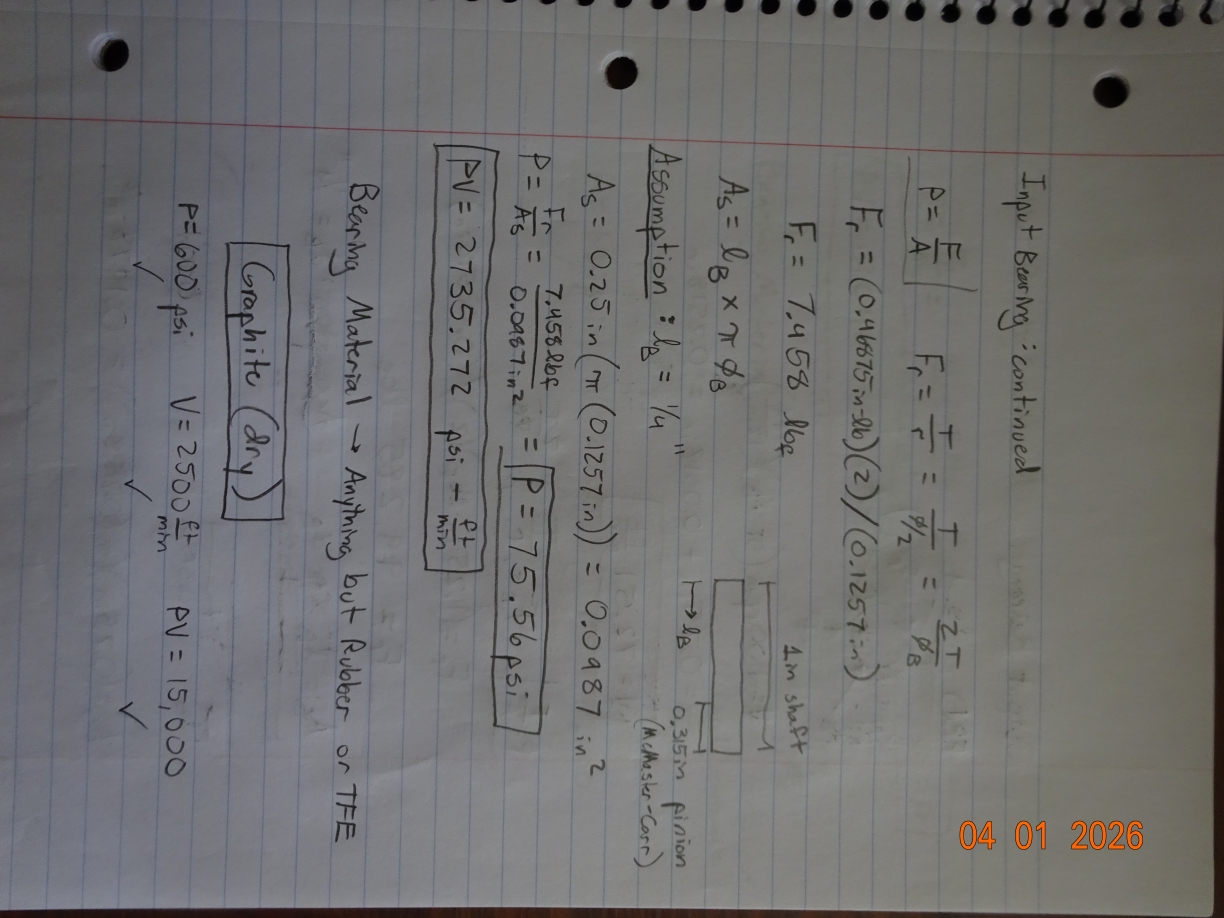 Input Bearing : continued
P = F/A   Fr = T/r = T/(ø/2) = 2T/øB
Fr = (0.46875 in-lb)(2)/(0.1257 in)
Fr = 7.458 lbf
1 in shaft
As = lB × π øB
→ lB   0.315 in pinion
(McMaster-Carr)
Assumption : lB = 1/4 "
As = 0.25 in (π (0.1257 in)) = 0.0987 in²
P = Fr/As = 7.458 lbf/0.0987 in² = P = 75.56 psi
PV = 2735.272 psi - ft/min
Bearing Material → Anything but Rubber or TFE
Graphite (dry)
P = 600 psi   V = 2500 ft/min   PV = 15,000
✓   ✓   ✓
04 01 2026